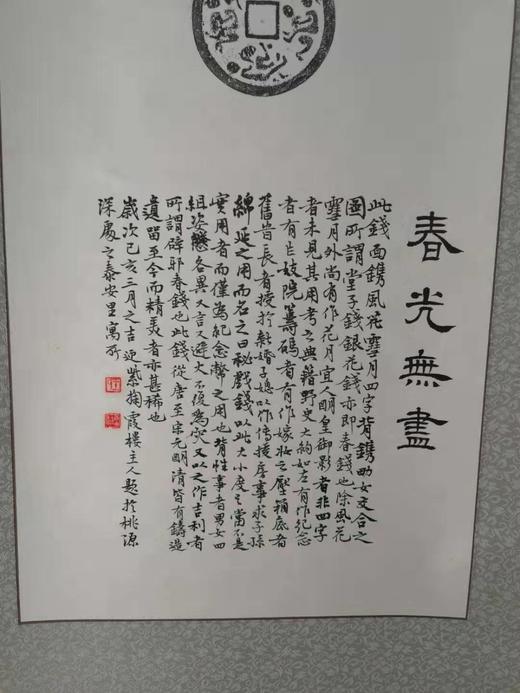 春光無盡
此錢面鐫風花雪月四字背鐫男女交合之
圖所謂堂子錢銀花錢亦即春錢也除風花
雪月外尚有作花月宜人明皇御影者非四字
者未見其用考之典籍野史大約如左有作紀念
者有作妓院籌碼者有作嫁妝之壓箱底者
舊昔長者授於新婚子媳以作傳接房事求子孫
綿延之用而名之曰秘戲錢以此大小度之當不是
實用者而僅為紀念幣之用也背性事者男女四
組姿態各異又言又避火不復為灾又以之作吉利者
所謂辟邪春錢也此錢從唐至宋元明清皆有鑄造
遺留至今而精美者亦甚稀也
歲次己亥三月之吉 紫陶霞樓主人題於桃源
深處之泰安里寓所